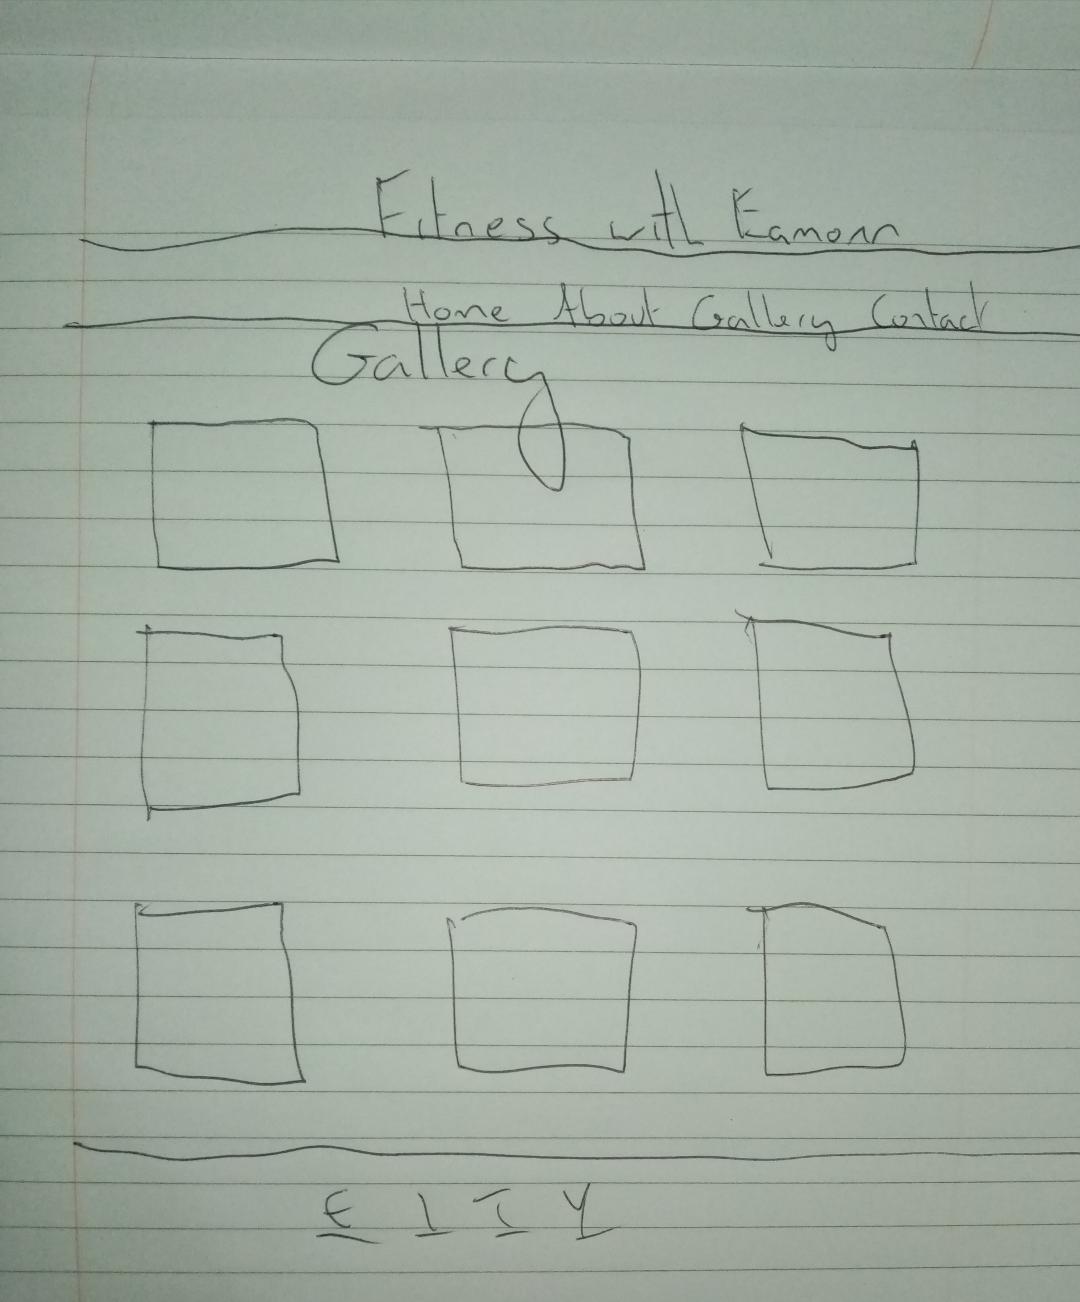 Fitness with Eamonn
Home About Gallery Contact
Gallery
E I T Y